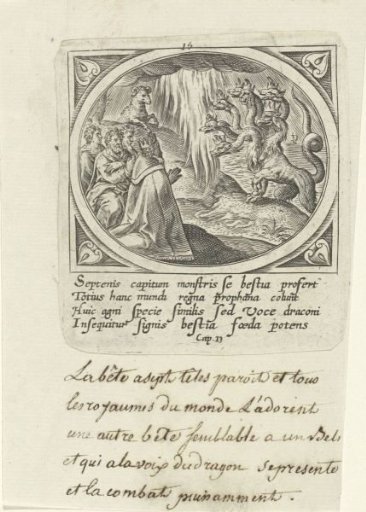 15
Septenis capitum monstris se bestia profert
Totius hanc mundi regna prophana colunt
Huic agni specie similis sed voce draconi
Insequitur signis bestia fœda potens
Cap. 13
La bête a sept têtes paroit et tous
les royaumes du monde L'adorent
une autre bête semblable a un
et qui a la voix du dragon se presente
et la combat puissamment.